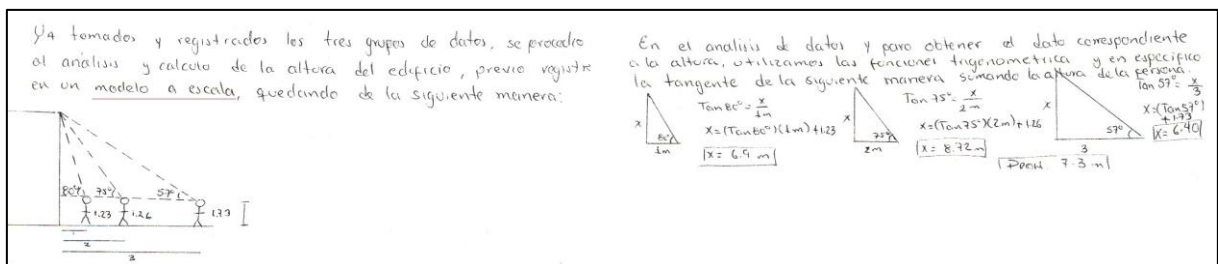 YA tomados y registrados los tres grupos de datos, se procedio
al análisis y calculo de la altura del edificio, previo registro
en un modelo a escala, quedando de la siguiente manera:
80° 75° 57°
1.23 1.26 1.73
1
2
3
En el analisis de datos y para obtener el dato correspondiente
a la altura, utilizamos las funciones trigonometrica y en especifico
la tangente de la siguiente manera sumando la altura de la persona.
x
80°
1m
Tan 80° = x/1m
x = (Tan 80°)(1m) + 1.23
x = 6.9 m
x
75°
2m
Tan 75° = x/2m
x = (Tan 75°)(2m) + 1.26
x = 8.72 m
x
57°
3
Tan 57° = x/3
x = (Tan 57°)
+ 1.73
x = 6.40
7.3 m